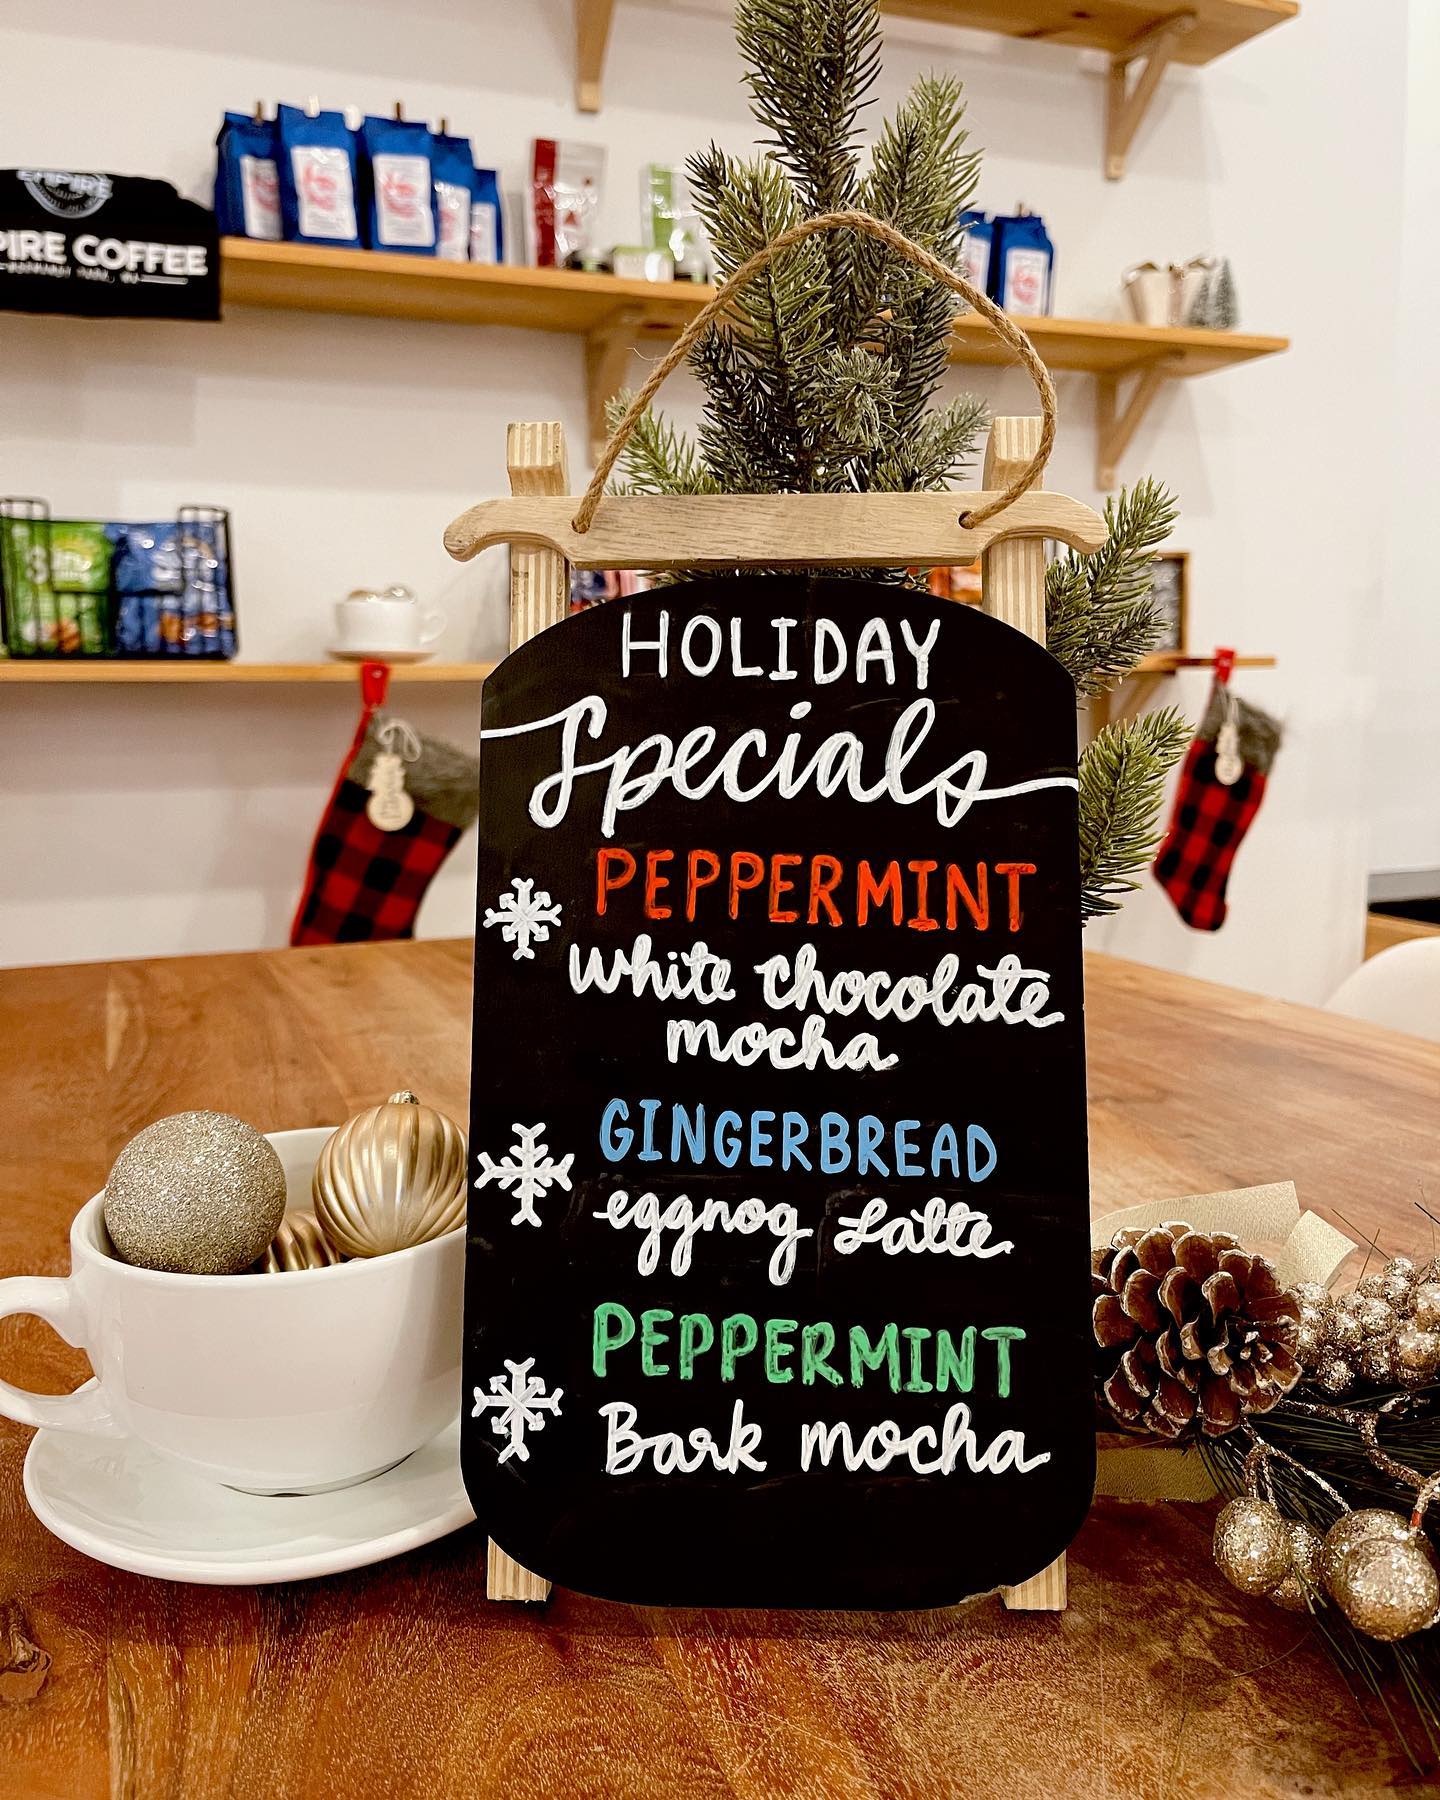 EMPIRE
PIRE COFFEE
HOLIDAY
Specials
PEPPERMINT
White chocolate
mocha
GINGERBREAD
eggnog Latte
PEPPERMINT
Bark mocha